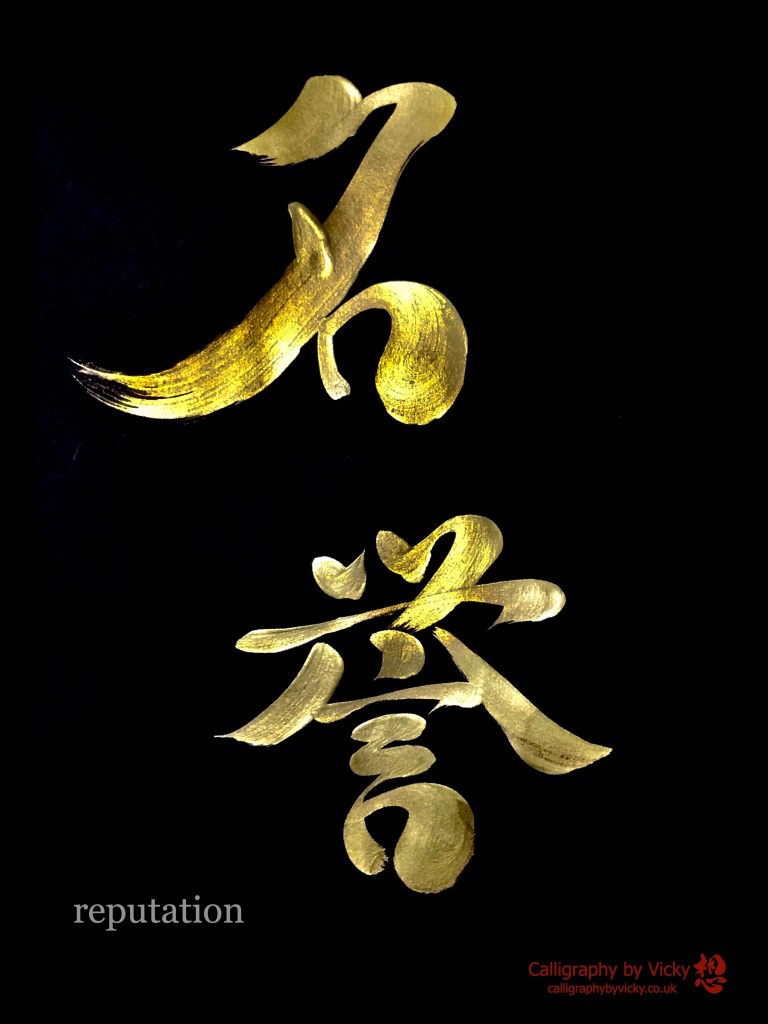 名
誉
reputation
Calligraphy by Vicky 想
calligraphybyvicky.co.uk